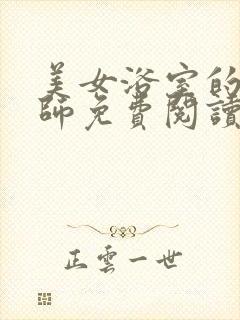 美女浴室的
師免費閱讀
正雲一世